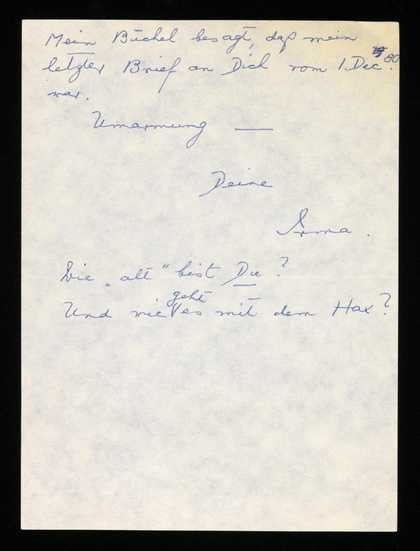 Mein Büchel besagt, daß mein
letzter Brief an Dich vom 1. Dec. 80
war.
Umarmung —
Deine
Irma.
Wie „alt" bist Du?
Und wie geht es mit dem Hax?